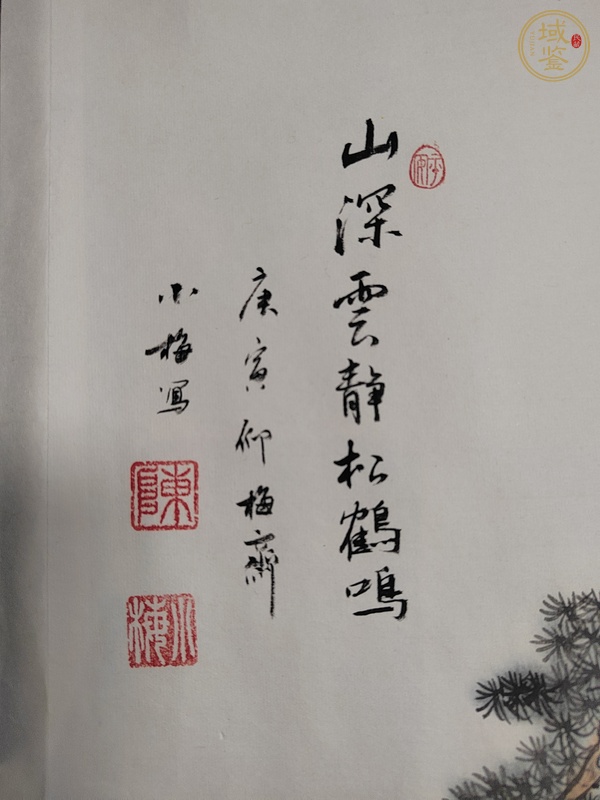 山深雲静松鶴鳴
庚寅仰梅齋
小梅寫
陳
小梅
域鉴